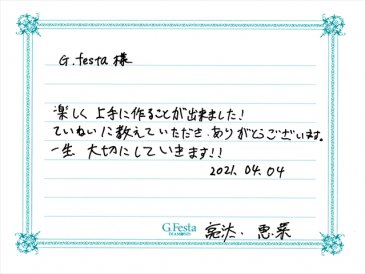 G.festa 様
楽しく 上手に作ることが出来ました!
ていねいに教えていただき、ありがとうございます。
一生 大切にしていきます!!
2021.04.04
G.Festa
DIAMOND
恵菜